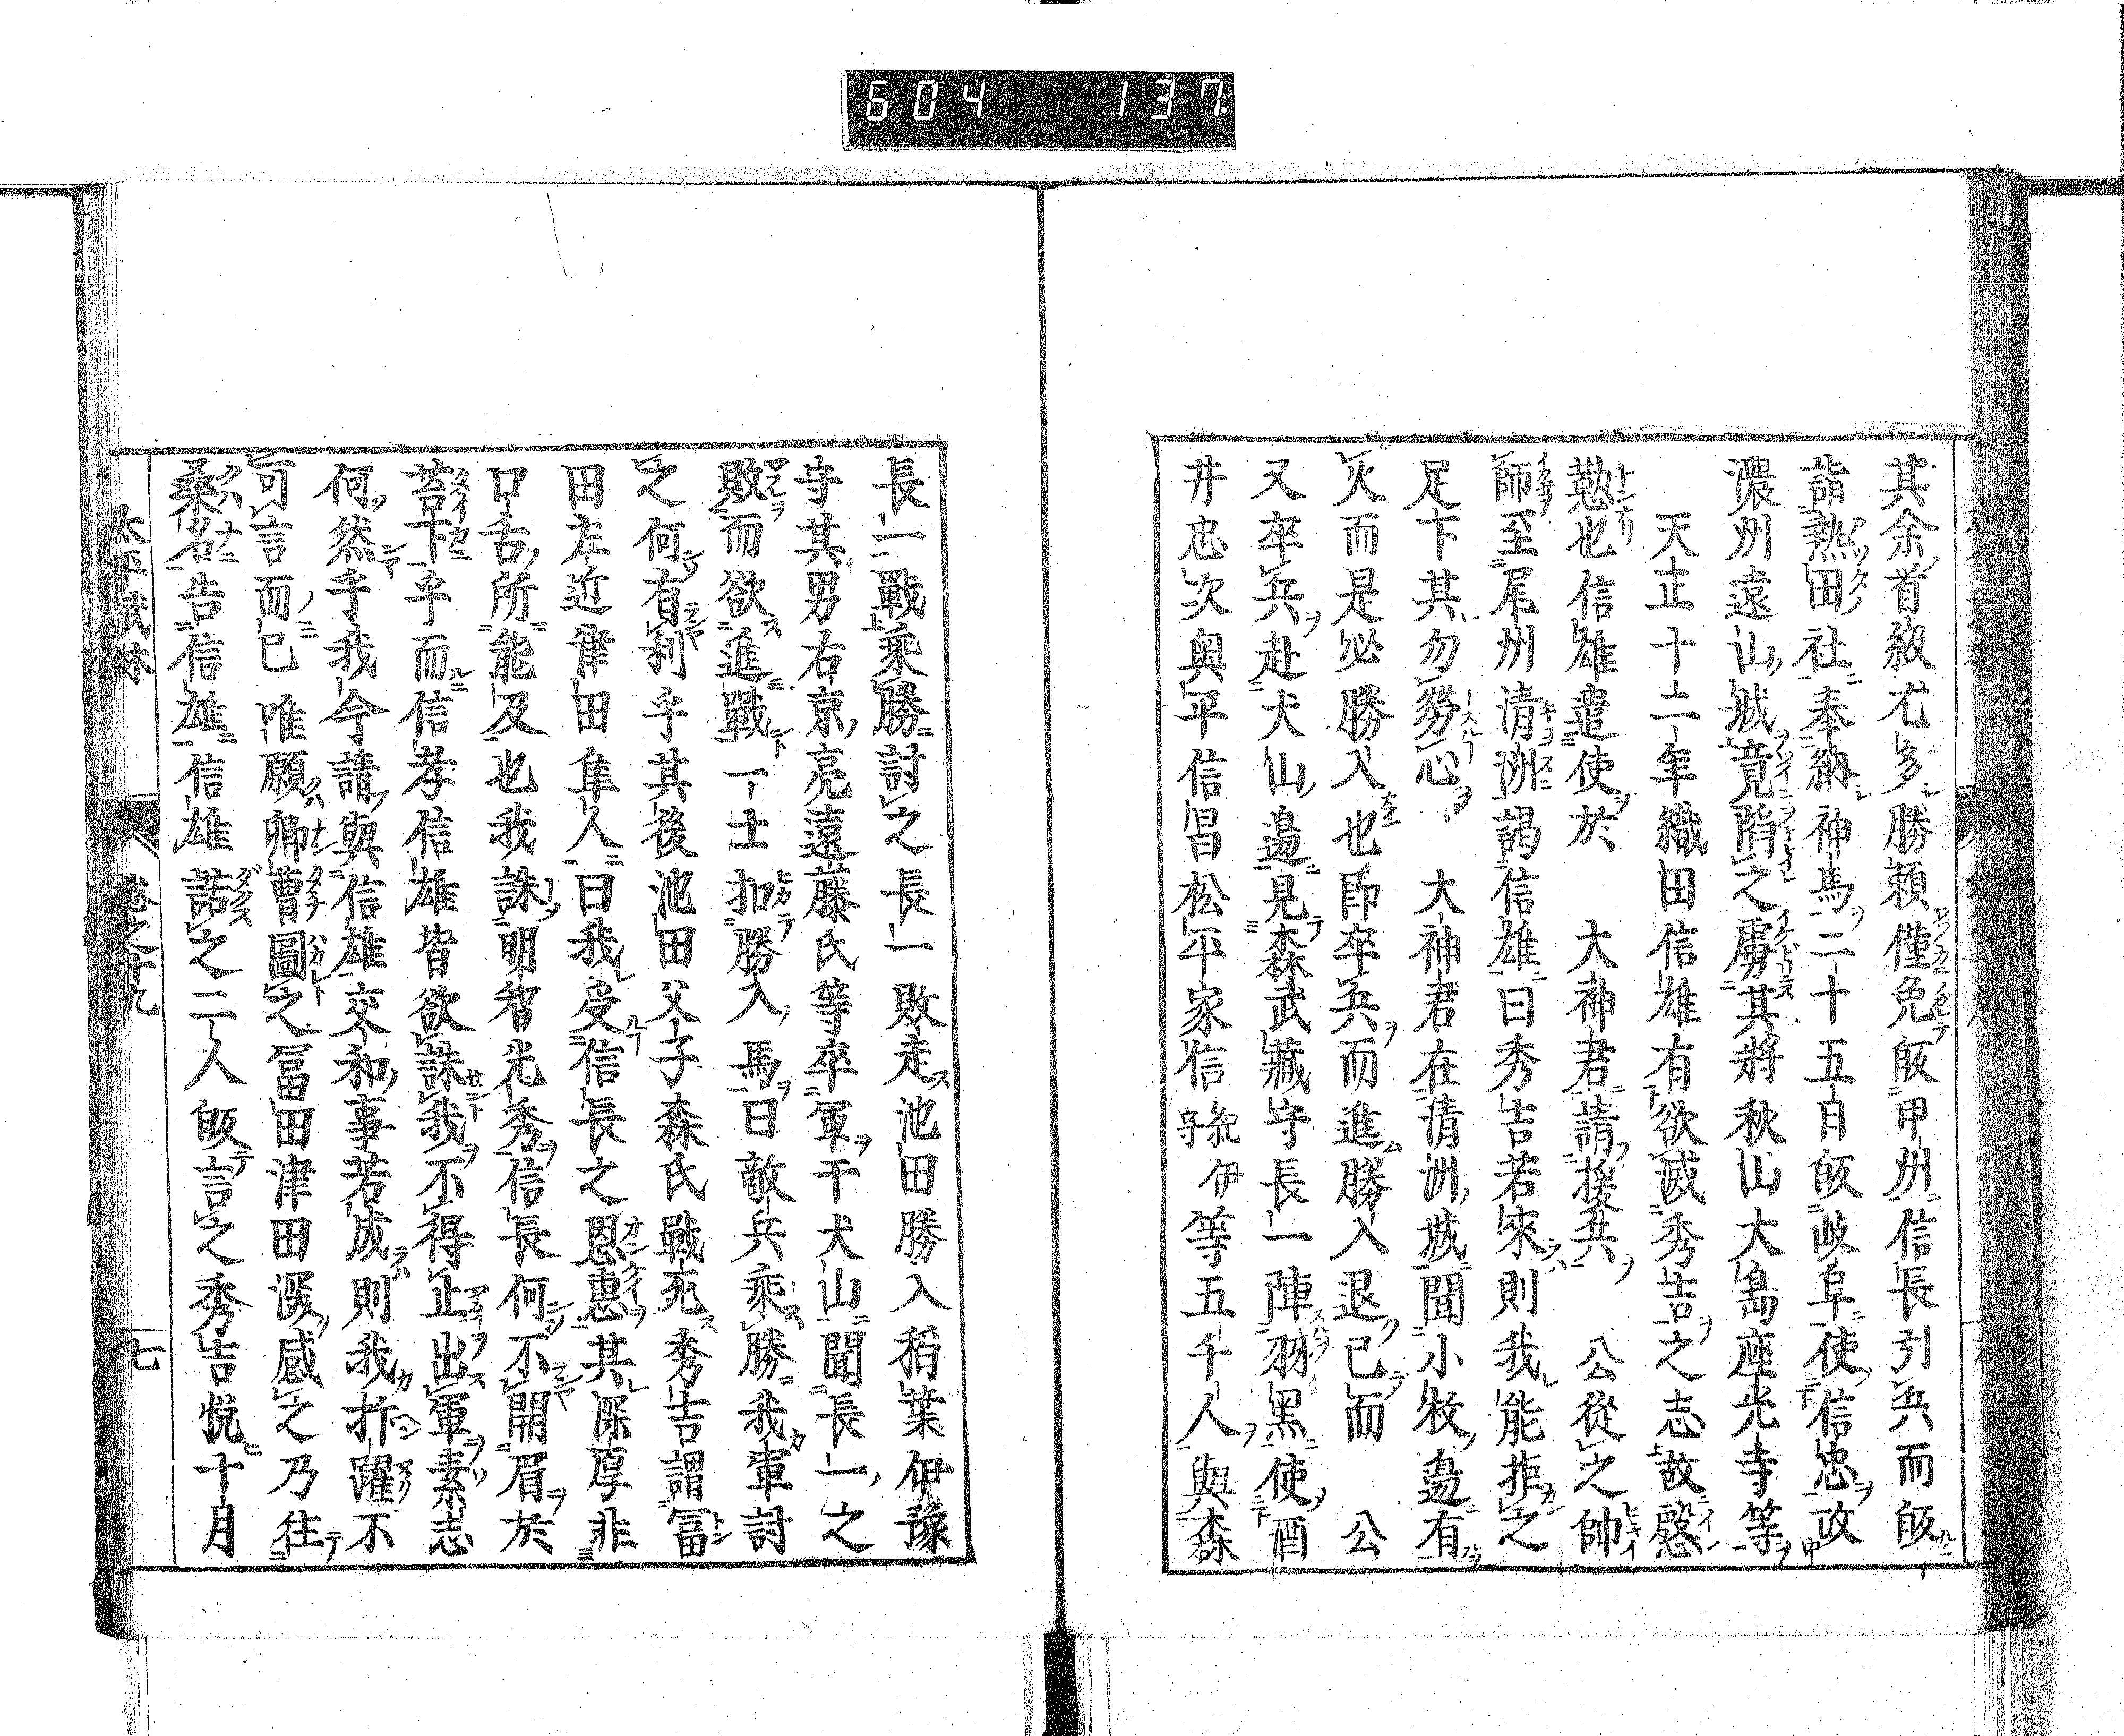 604 137
其余首級尤多勝頼僅免皈甲州信長引兵而皈
詣熱田社奉納神馬二十五日皈岐阜使信忠政
濃州遠山城竟陷之虜其將秋山大嶌座光寺等
天正十二年織田信雄有欲滅秀吉之志故慇
懃也信雄遣使於 大神君請援兵 公從之帥
師至尾州清洲謁信雄曰秀吉若來則我能拒之
足下其勿勞心 大神君在清洲城聞小牧邉有
火而是必勝入也即卒兵而進勝入退已而 公
又卒兵赴犬山邉見森武藏守長一陣羽黑使酒
井忠次奥平信昌松平家信紀伊守等五千人與森
長一戰乘勝討之長一敗走池田勝入稻葉伊豫
守其男右京亮遠藤氏等卒軍于犬山聞長一之
敗而欲進戰一士扣勝入馬曰敵兵乘勝我軍討
之何有利乎其後池田父子森氏戰死秀吉謂冨
田左近津田隼人曰我受信長之恩惠其深厚非
口舌所能及也我誅明智光秀信長何不開眉於
苔下乎而信孝信雄皆欲誅我不得止出軍素志
何然乎我今請與信雄交和事若成則我折躍不
可言而已 唯願卿曹圖之冨田津田深感之乃往
桑名告信雄信雄諾之二人皈言之秀吉悦十月
太平武林 卷之十九 七